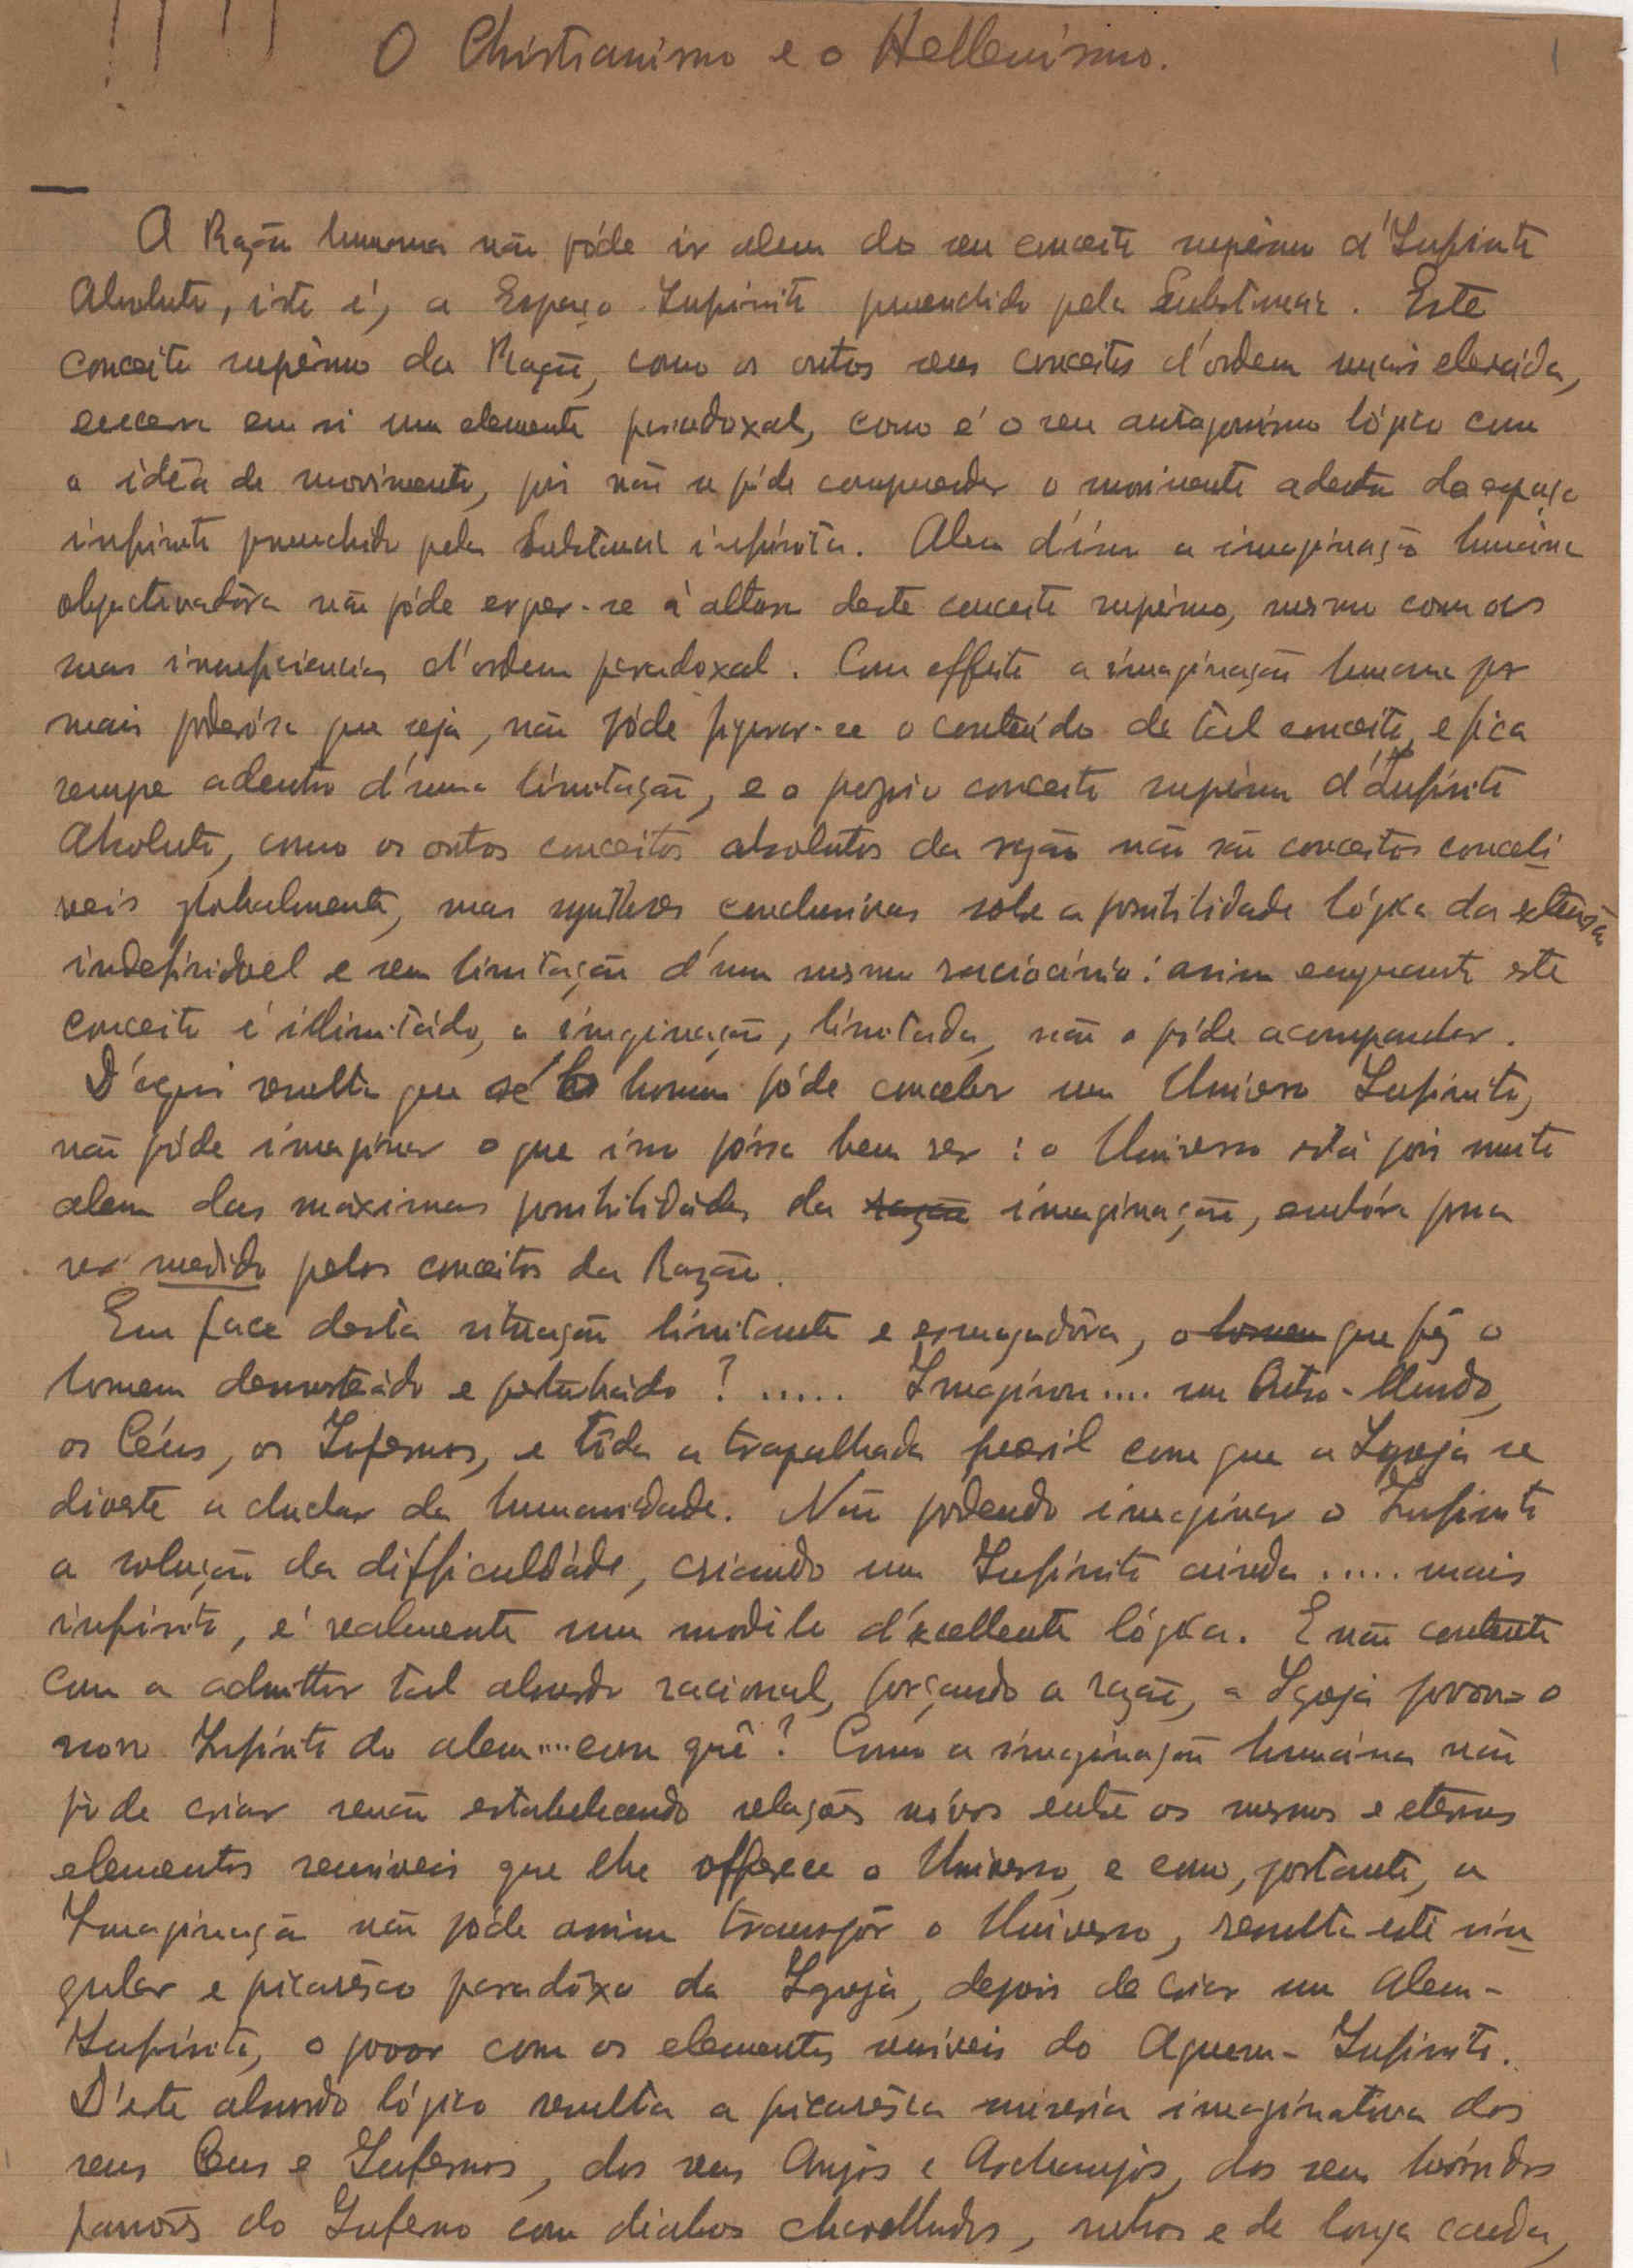 1
O Christianismo e o Hellenismo.
A Razão humana não póde ir alem do seu conceito supremo d'Infinito
Absoluto, isto é, o Espaço Infinito preenchido pela Substancia. Este
conceito suprêmo da Razão, como os outros seus conceitos d'ordem mais elevada,
encerra em si um elemento paradoxal, como é o seu antagonismo lógico com
a idêa de movimento, pois não se póde comprehender o movimento adentro do espaço
infinito preenchido pela Substancia infinita. Alem d'isso a imaginação humana
objectivadôra não póde erguer-se á altura deste conceito suprêmo, mesmo com as
suas insufficiencias d'ordem paradoxal. Com effeito a imaginação humana por
mais poderósa que seja, não póde figurar-se o conteúdo de tal conceito, e fica
sempre adentro d'uma limitação, e o proprio conceito suprêmo d'Infinito
Absoluto, como os outros conceitos absolutos da razão não são conceitos concebi
veis globalmente, mas syntheses conclusivas sobre a possibilidade lógica da extensão
indefinidavel e sem limitação d'um mesmo raciocinio: assim emquanto este
conceito é illimitádo, a imaginação, limitada, não o póde acompanhar.
D'aqui resulta que sé o homem póde conceber um Universo Infinito,
não póde imaginar o que isso póssa bem ser: o Universo está pois muito
alem das máximas possibilidádes da razão imaginação, embóra possa
ser medido pelos conceitos da Razão.
Em face desta situação limitante e esmagadôra, o homem que fêz o
homem desnorteádo e perturbádo? ..... Imaginou.... um Outro-Mundo,
os Céus, os Infernos, e tôda a trapalhada pueril com que a Igreja se
diverte a chuchar da humanidade. Não podendo imaginar o Infinito
a solução da difficuldáde, criando um Infinito ainda ..... mais
infinito, é realmente um modêlo d'excellente lógica. E não contente
com a admittir tal absurdo racional, forçando a razão, a Igreja povou-o
novo Infinito do alem....com quê? Como a imaginação humana não
póde criar senão estabelecendo relações nóvas entre os mesmos e eternos
elementos sensiveis que lhe offerece o Universo, e como, portanto, a
Imaginação não póde assim transpôr o Universo, resulta este sin
gular e picarêsco paradôxo da Igreja, depois de criar um Alem-
Infinito, o povoar com os elementos sensiveis do Aquem-Infinito.
D'este absurdo lógico resulta a picarêsca miseria imaginativa dos
seus Ceus e Infernos, dos seus Anjos e Archanjos, dos seus hórridos
do Inferno com diabos chavelhudos, rubros e de longa cauda,